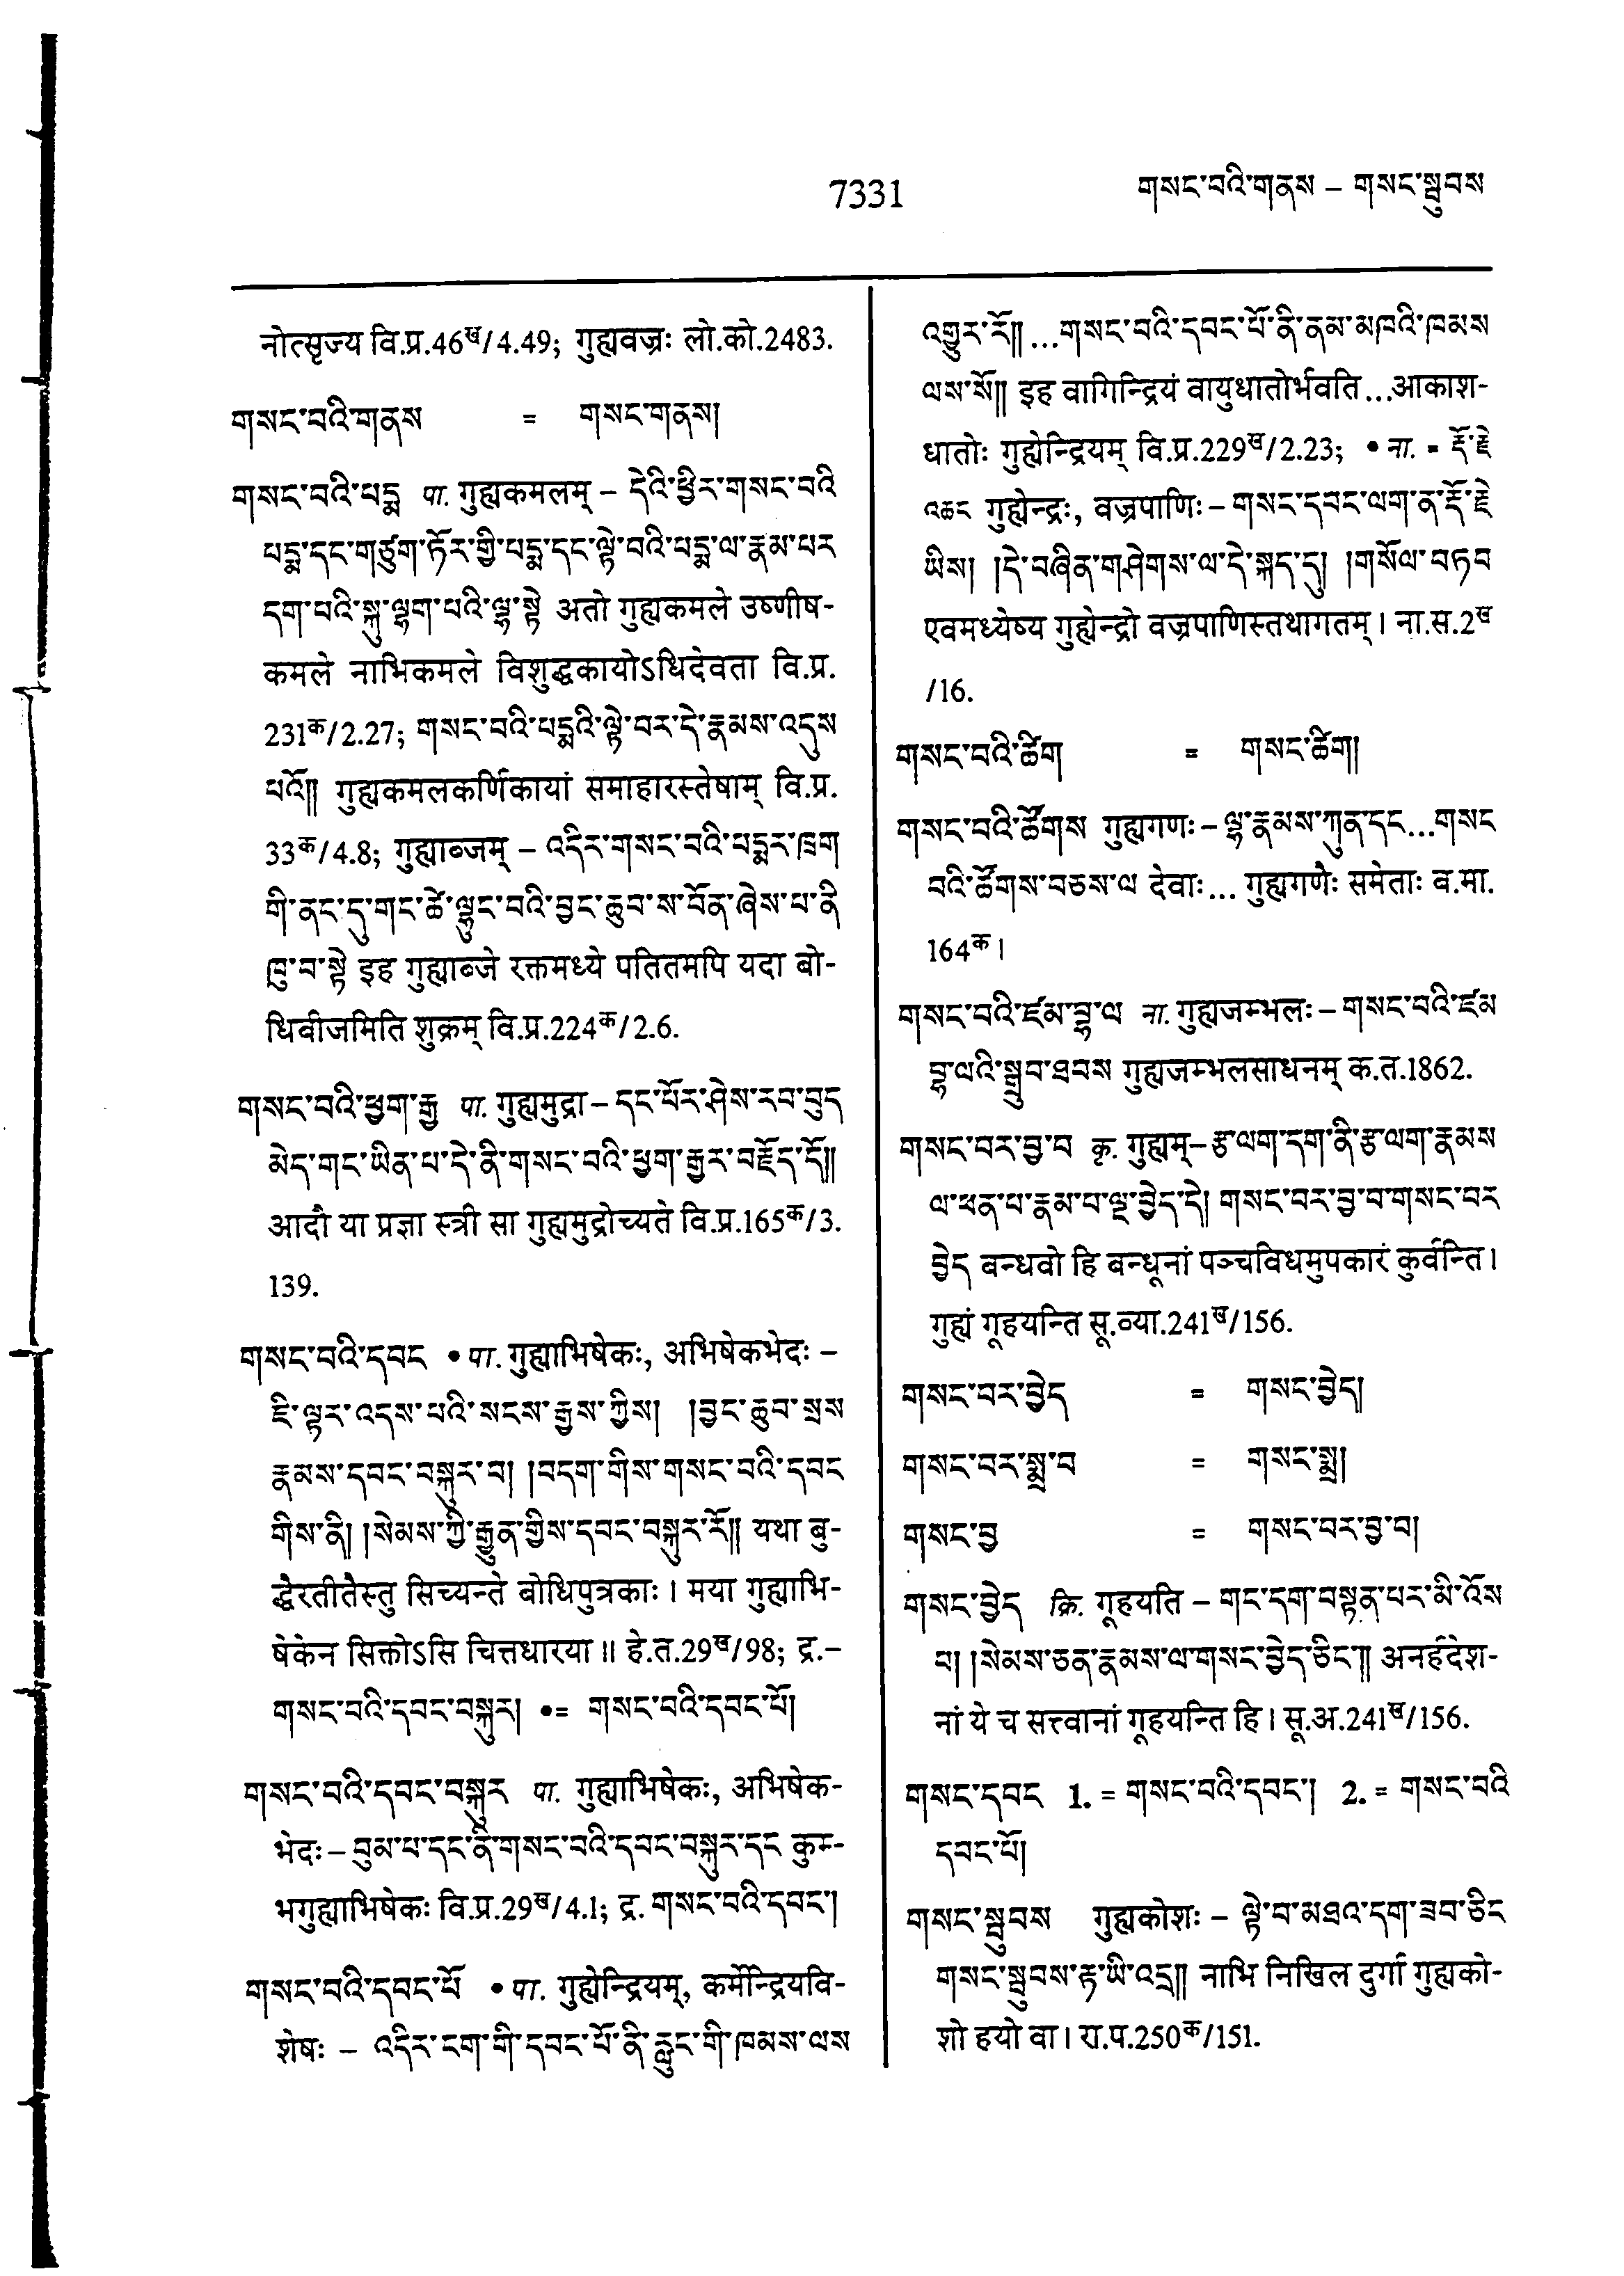 7331
གསང་བའི་གནས – གསང་སྦུབས
नोत्सृज्य वि.प्र.46ख/4.49; गुह्यवज्रः लो.को.2483.
གསང་བའི་གནས = གསང་གནས།
གསང་བའི་པདྨ པा. गुह्यकमलम् – དེའི་ཕྱིར་གསང་བའི
པདྨ་དང་གཙུག་ཏོར་གྱི་པདྨ་དང་ལྟེ་བའི་པདྨ་ལ་རྣམ་པར
དག་པའི་སྐུ་ལྷག་པའི་ལྷ་སྟེ अतो गुह्यकमले उष्णीष-
कमले नाभिकमले विशुद्धकायोऽधिदेवता वि.प्र.
231क/2.27; གསང་བའི་པདྨའི་ལྟེ་བར་དེ་རྣམས་འདུས
པའོ།། गुह्यकमलकर्णिकायां समाहारस्तेषाम् वि.प्र.
33क/4.8; गुह्याब्जम् – འདིར་གསང་བའི་པདྨར་ཁྲག
གི་ནང་དུ་གང་ཚེ་ལྷུང་བའི་བྱང་ཆུབ་ས་བོན་ཞེས་པ་ནི
ཁུ་བ་སྟེ इह गुह्याब्जे रक्तमध्ये पतितमपि यदा बो-
धिवीजमिति शुक्रम् वि.प्र.224क/2.6.
གསང་བའི་ཕྱག་རྒྱ पा. गुह्यमुद्रा – དང་པོར་ཤེས་རབ་བུད
མེད་གང་ཡིན་པ་དེ་ནི་གསང་བའི་ཕྱག་རྒྱར་བརྗོད་དོ།།
आदौ या प्रज्ञा स्त्री सा गुह्यमुद्रोच्यते वि.प्र.165क/3.
139.
གསང་བའི་དབང • पा. गुह्याभिषेकः, अभिषेकभेदः –
ཇི་ལྟར་འདས་པའི་སངས་རྒྱས་ཀྱིས། །བྱང་ཆུབ་སྲས
རྣམས་དབང་བསྐུར་བ། །བདག་གིས་གསང་བའི་དབང
གིས་ནི། །སེམས་ཀྱི་རྒྱུན་གྱིས་དབང་བསྐུར་རོ།། यथा बु-
द्धैरतीतैस्तु सिच्यन्ते बोधिपुत्रकाः । मया गुह्याभि-
षेकेन सिक्तोऽसि चित्तधारया ॥ हे.त.29ख/98; द्र.–
གསང་བའི་དབང་བསྐུར། •= གསང་བའི་དབང་པོ།
གསང་བའི་དབང་བསྐུར पा. गुह्याभिषेकः, अभिषेक-
भेदः – བུམ་པ་དང་ནི་གསང་བའི་དབང་བསྐུར་དང कुम्-
भगुह्याभिषेकः वि.प्र.29ख/4.1; द्र. གསང་བའི་དབང་།
གསང་བའི་དབང་པོ • पा. गुह्येन्द्रियम्, कर्मेन्द्रियवि-
शेषः – འདིར་ངག་གི་དབང་པོ་ནི་རླུང་གི་ཁམས་ལས
འགྱུར་རོ།། ...གསང་བའི་དབང་པོ་ནི་ནམ་མཁའི་ཁམས
ལས་སོ།། इह वागिन्द्रियं वायुधातोर्भवति ...आकाश-
धातोः गुह्येन्द्रियम् वि.प्र.229ख/2.23; • ना. = རྡོ་རྗེ
འཆང गुह्येन्द्रः, वज्रपाणिः – གསང་དབང་ལག་ན་རྡོ་རྗེ
ཡིས། །དེ་བཞིན་གཤེགས་ལ་དེ་སྐད་དུ། །གསོལ་བཏབ
एवमध्येष्य गुह्येन्द्रो वज्रपाणिस्तथागतम् । ना.स.2ख
/16.
གསང་བའི་ཚིག = གསང་ཚིག།
གསང་བའི་ཚོགས गुह्यगणः – ལྷ་རྣམས་ཀུན་དང...གསང
བའི་ཚོགས་བཅས་ལ देवाः... गुह्यगणैः समेताः व.मा.
164क ।
གསང་བའི་ཛམ་བྷ་ལ ना. गुह्यजम्भलः – གསང་བའི་ཛམ
བྷ་ལའི་སྒྲུབ་ཐབས गुह्यजम्भलसाधनम् क.त.1862.
གསང་བར་བྱ་བ कृ. गुह्यम् – རྩ་ལག་དག་ནི་རྩ་ལག་རྣམས
ལ་ཕན་པ་རྣམ་པ་ལྔ་བྱེད་དེ། གསང་བར་བྱ་བ་གསང་བར
བྱེད बन्धवो हि बन्धूनां पञ्चविधमुपकारं कुर्वन्ति ।
गुह्यं गूहयन्ति सू.व्या.241ख/156.
གསང་བར་བྱེད = གསང་བྱེད།
གསང་བར་སྨྲ་བ = གསང་སྨྲ།
གསང་བྱ = གསང་བར་བྱ་བ།
གསང་བྱེད क्रि. गूहयति – གང་དག་བསྟན་པར་མི་འོས
པ། །སེམས་ཅན་རྣམས་ལ་གསང་བྱེད་ཅིང་།། अनर्हदेश-
नां ये च सत्त्वानां गूहयन्ति हि । सू.अ.241ख/156.
གསང་དབང 1. = གསང་བའི་དབང་། 2. = གསང་བའི
དབང་པོ།
གསང་སྦུབས गुह्यकोशः – ལྟེ་བ་མཐའ་དག་ཟབ་ཅིང
གསང་སྦུབས་རྟ་ཡི་འདྲ།། नाभि निखिल दुर्गा गुह्यको-
शो हयो वा । रा.प.250क/151.